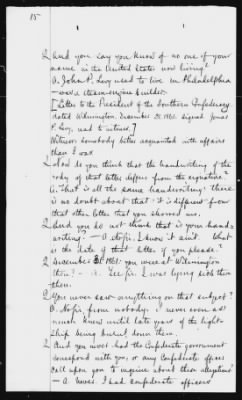 15
Q And you say you know of no one of your
name in the United States now living?
A. John P. Levy used to live in Philadelphia
– was a steam engine builder.
[Letter to the President of the Southern Confederacy
dated Wilmington, December 28, 1861. signed Jonas
P. Levy, read to witness.]
Witness: somebody better acquainted with affairs
than I was.
Q Now do you think that the handwriting of the
body of that letter differs from the signature?
A. That is all the same handwriting: there
is no doubt about that. It is different from
that other letter that you showed me.
Q And you do not think that is your hand-
writing? – A. No sir, I know it ain't. What
is the date of that letter if you please?
Q December 28 1861: you were at Wilmington
then? – A. Yes sir. I was lying sick there
then.
Q You never saw anything on that subject?
A. No sir, from nobody. I never even as
much knew until late years of the light-
ship being burned down there.
Q And you never had the Confederate government
correspond with you, or any Confederate officer
call upon you to inquire about these allegations?
– A. Never. I had Confederate officers